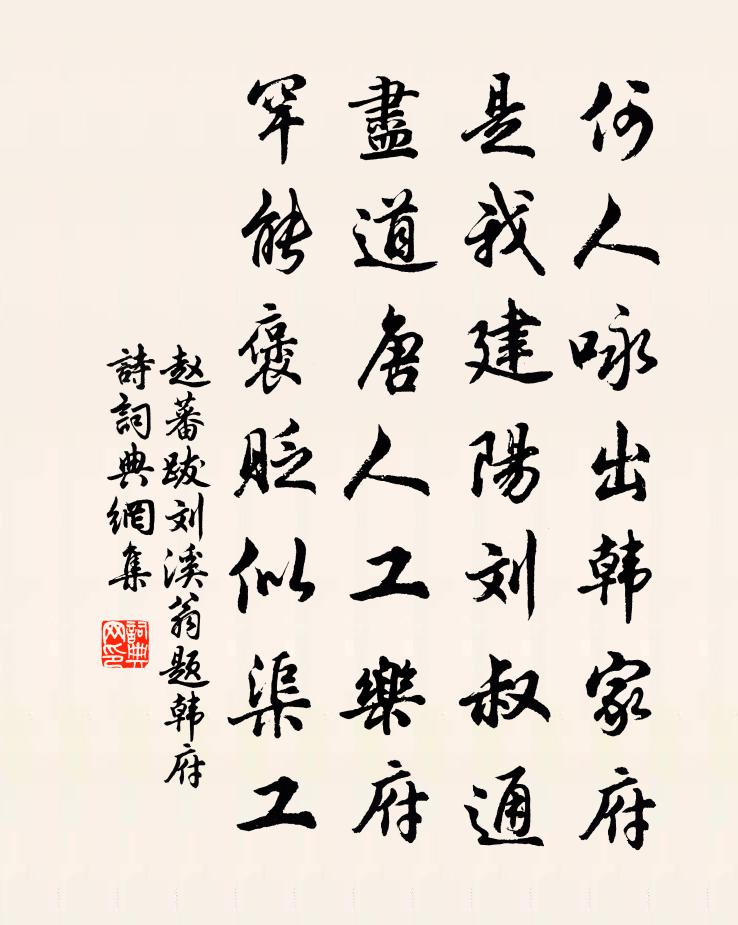 何人咏出韩家府
是我建陽刘叔通
盡道唐人工樂府
罕能褒貶似渠工
赵蕃跋刘溪翁题韩府
詩詞典網集
詞典网印